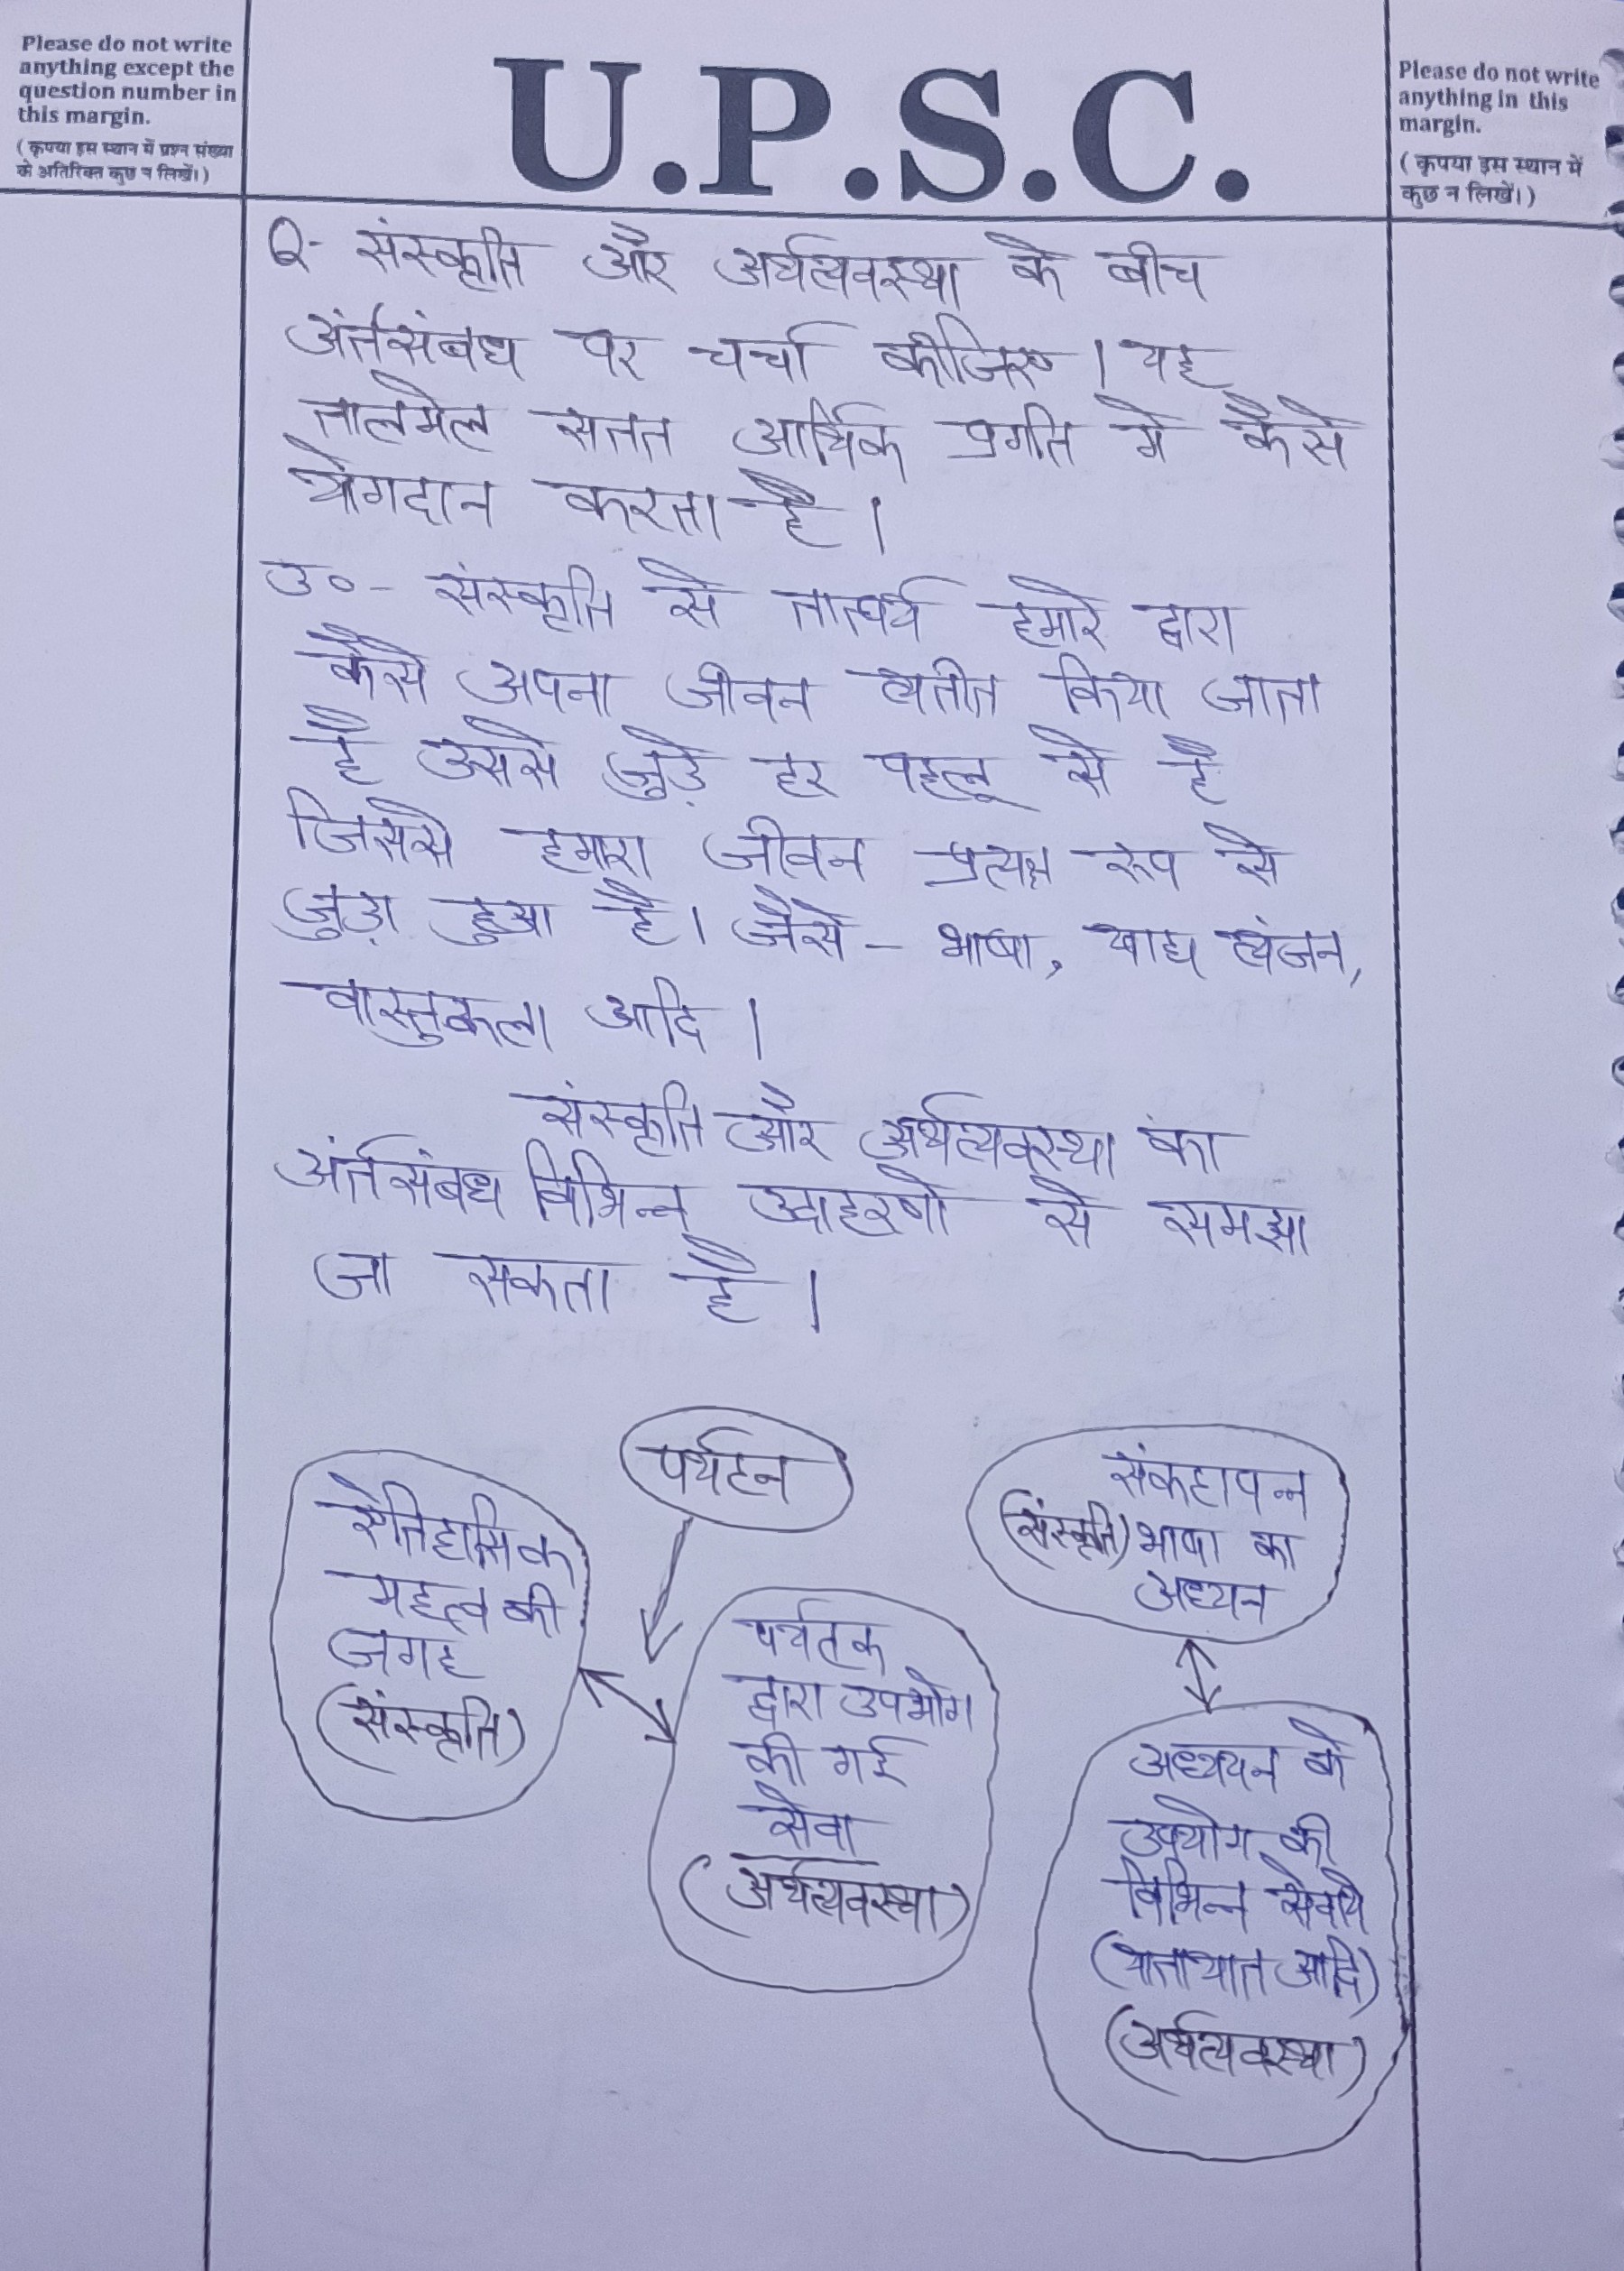 Please do not write
anything except the
question number in
this margin.
(कृपया इस स्थान में प्रश्न संख्या
के अतिरिक्त कुछ न लिखें।)
U.P.S.C.
Please do not write
anything in this
margin.
(कृपया इस स्थान में
कुछ न लिखें।)
Q- संस्कृति और अर्थव्यवस्था के बीच
अंर्तसंबध पर चर्चा कीजिए। यह
तालमेल सतत आर्थिक प्रगति मे कैसे
योगदान करता है।
उ०- संस्कृति से तात्पर्य हमारे द्वारा
कैसे अपना जीवन व्यतीत किया जाता
है उससे जुड़े हर पहलू से है
जिससे हमारा जीवन प्रत्यक्ष रूप से
जुड़ा हुआ है। जैसे- भाषा, खाद्य व्यंजन,
वास्तुकला आदि।
संस्कृति और अर्थव्यवस्था का
अंर्तसंबध विभिन्न उदाहरणो से समझा
जा सकता है।
पर्यटन
ऐतिहासिक
महत्व की
जगह
(संस्कृति)
पर्यटक
द्वारा उपभोग
की गई
सेवा
(अर्थव्यवस्था)
संकटापन्न
(संस्कृति) भाषा का
अध्यन
अध्ययन के
उपयोग की
विभिन्न सेवाये
(यातायात आदि)
(अर्थव्यवस्था)